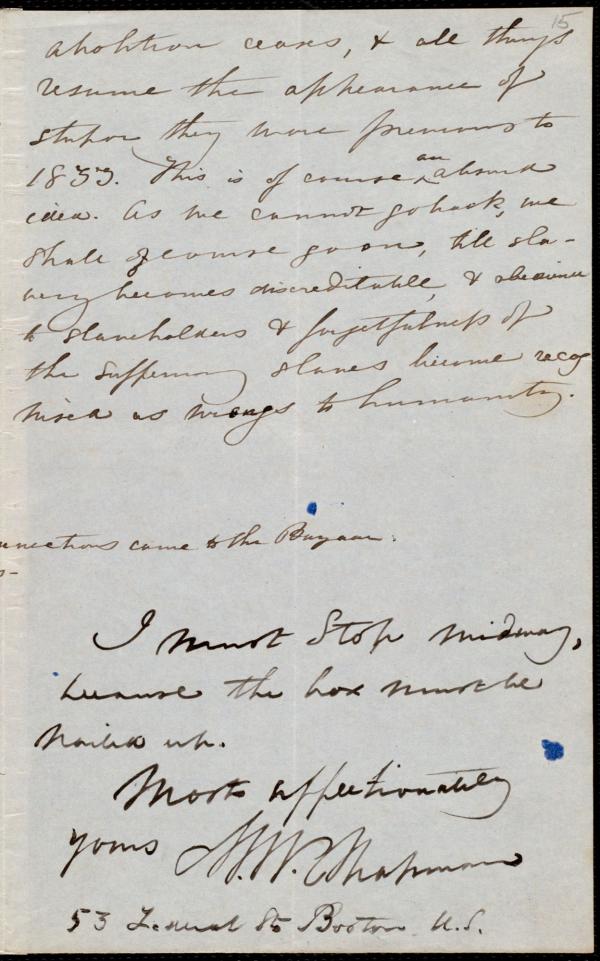 15
abolition ceases, & all things
resume the appearance of
stupor they wore previous to
1833. This is of course an absurd
idea. As we cannot go back, we
shall of course go on, till sla-
very becomes discreditable, &
to slaveholders & forgetfulness of
the suffering slaves become recog
nised as wrongs to humanity.
nnections came to the Bazaar.
s-
I must stop midway,
because the box must be
nailed up.
Most affectionately
yours M. W. Chapman
53 Federal St Boston U.S.